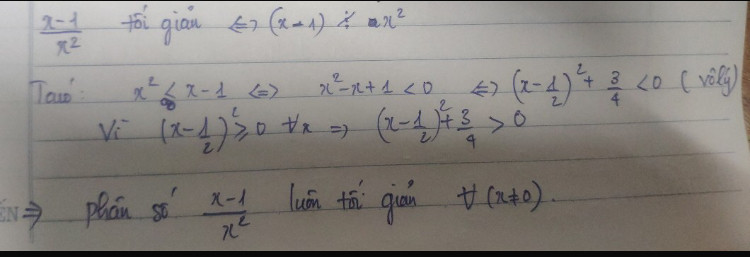 x-1/x² tối giản ⇔ (x-1) ⋮̸ x²
Ta có: x² ≤ x-1 ⇔ x²-x+1 < 0 ⇔ (x-1/2)² + 3/4 < 0 (vô lý)
Vì (x-1/2)² ≥ 0 ∀x ⇒ (x-1/2)² + 3/4 > 0
ÊN ⇒ phân số x-1/x² luôn tối giản ∀ (x≠0).